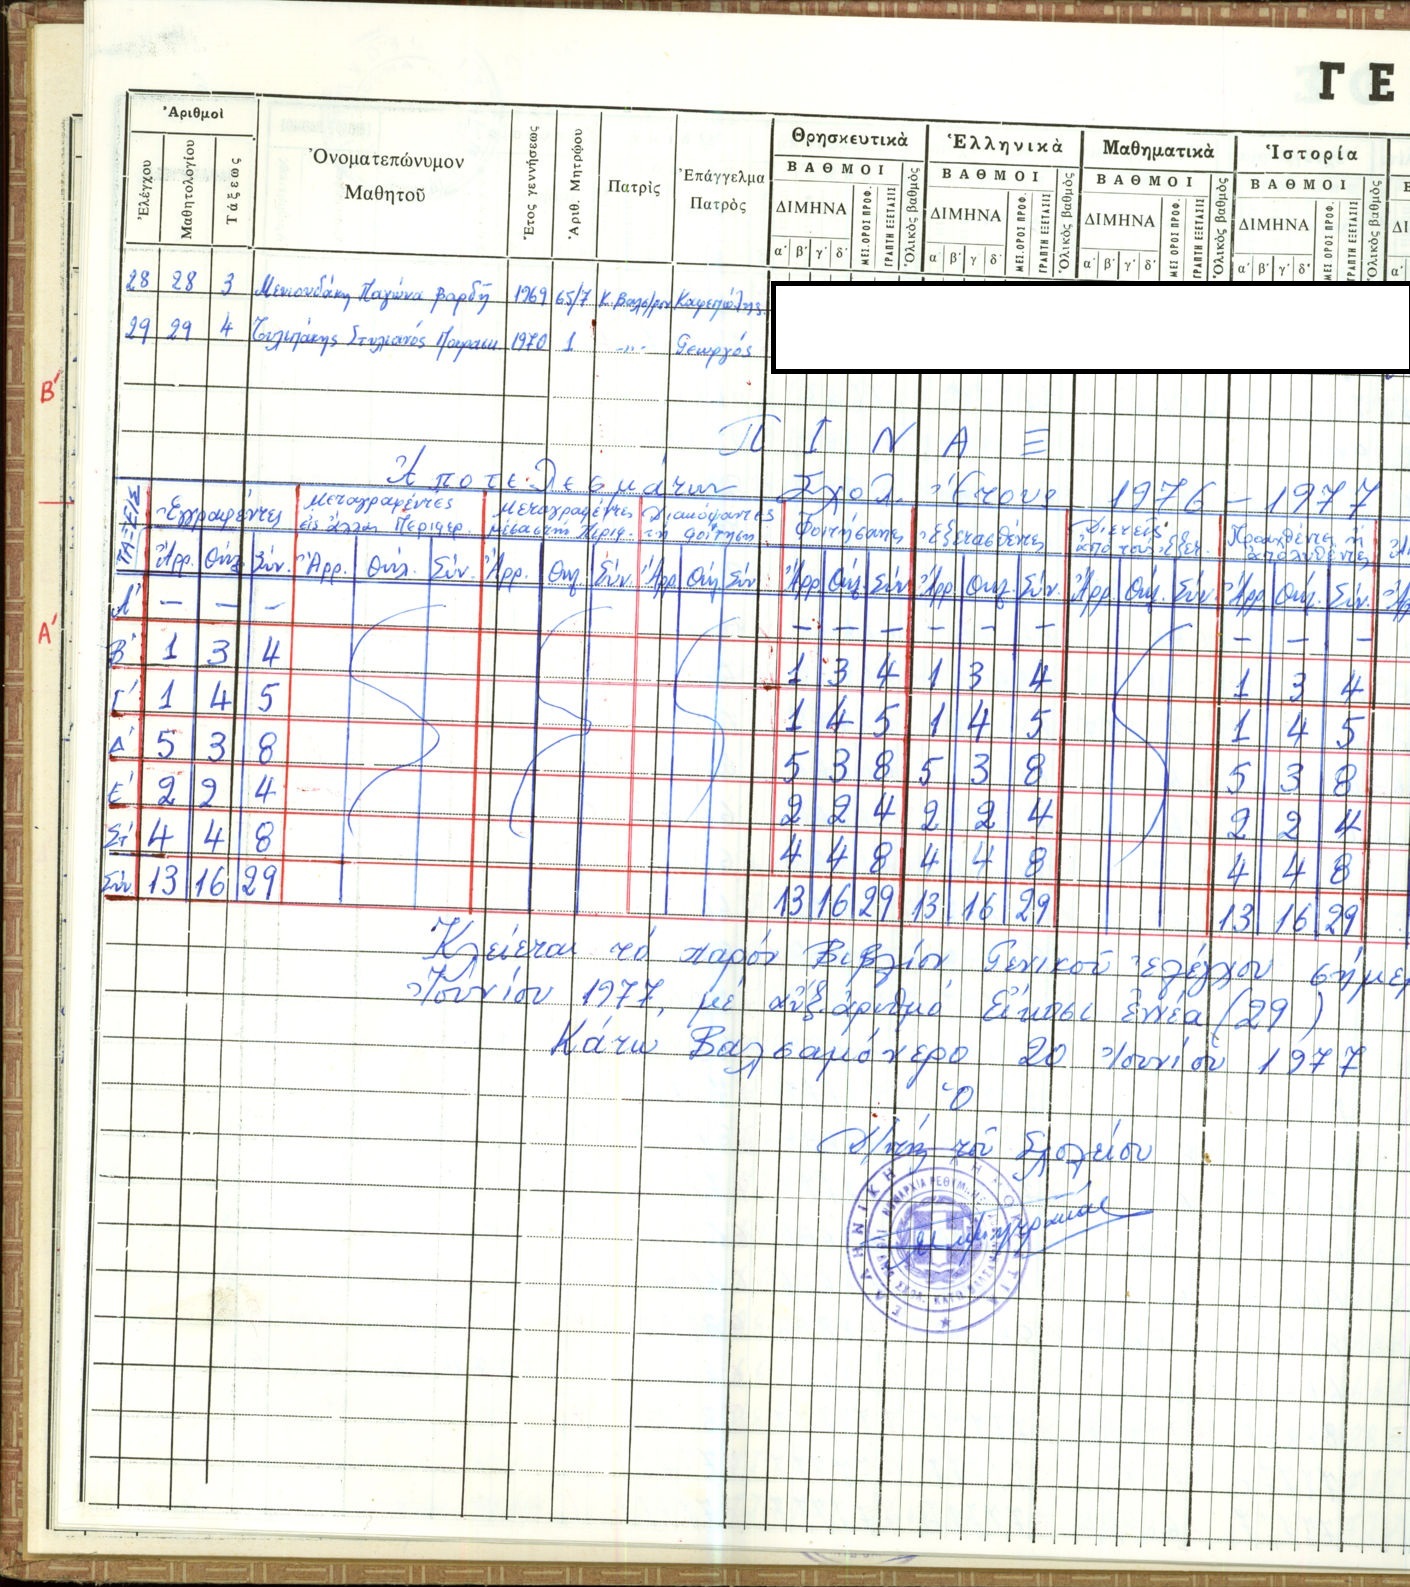 ΓΕ
Ἀριθμοὶ
Ἐλέγχου Μαθητολογίου Τάξεως
Ὀνοματεπώνυμον
Μαθητοῦ
Ἔτος γεννήσεως
Ἀριθ. Μητρῴου
Πατρὶς
Ἐπάγγελμα
Πατρὸς
Θρησκευτικὰ Ἑλληνικὰ Μαθηματικὰ Ἱστορία
ΒΑΘΜΟΙ ΒΑΘΜΟΙ ΒΑΘΜΟΙ ΒΑΘΜΟΙ
ΔΙΜΗΝΑ ΜΕΣ. ΟΡΟΣ ΠΡΟΦ. ΓΡΑΠΤΗ ΕΞΕΤΑΣΙΣ Ὁλικὸς βαθμὸς ΔΙΜΗΝΑ ΜΕΣ. ΟΡΟΣ ΠΡΟΦ. ΓΡΑΠΤΗ ΕΞΕΤΑΣΙΣ Ὁλικὸς βαθμὸς ΔΙΜΗΝΑ ΜΕΣ. ΟΡΟΣ ΠΡΟΦ. ΓΡΑΠΤΗ ΕΞΕΤΑΣΙΣ Ὁλικὸς βαθμὸς ΔΙΜΗΝΑ ΜΕΣ ΟΡΟΣ ΠΡΟΦ. ΓΡΑΠΤΗ ΕΞΕΤΑΣΙΣ Ὁλικὸς βαθμὸς
α΄ β΄ γ΄ δ΄ α β΄ γ δ΄ α΄ β΄ γ΄ δ΄ α΄ β΄ γ΄ δ΄ α΄
28 28 3 Παγώνα Βαρδῆ 1969 65/7
29 29 4 Στυλιανός 1970 1 -"- Γεωργός
Β΄
Π Ι Ν Α Ξ
Ἀποτελεσμάτων Σχολ. Ἔτους 1976-1977
ΤΑΞΕΙΣ Ἐγγραφέντες Μεταγραφέντες Μεταγραφέντες Διακόψαντες Φοιτήσαντες Ἐξετασθέντες
εἰς ἄλλην Περιφερ. τὴ φοίτηση ἀπολυθέντες
Ἄρρ. Θήλ. Σύν. Ἄρρ. Θήλ. Σύν. Ἄρρ. Θηλ. Σύν. Ἄρρ. Θήλ Σύν Ἄρρ. Θήλ. Σύν Ἄρρ. Θηλ. Σύν. Ἄρρ. Θηλ. Σύν. Ἄρρ. Θήλ. Σύν.
Α΄ – – – – – – – – – – – –
Α΄
Β΄ 1 3 4 1 3 4 1 3 4 1 3 4
Γ΄ 1 4 5 1 4 5 1 4 5 1 4 5
Δ΄ 5 3 8 5 3 8 5 3 8 5 3 8
Ε΄ 2 2 4 2 2 4 2 2 4 2 2 4
Στ΄ 4 4 8 4 4 8 4 4 8 4 4 8
Σύν 13 16 29 13 16 29 13 16 29 13 16 29
Κλείεται τό παρόν Βιβλίον Γενικοῦ ἐλέγχου σήμερ
Ἰουνίου 1977, μέ αὔξ. ἀριθμό Εἴκοσι ἐννέα (29)
Κάτω Βαλσαμόνερο 20 Ἰουνίου 1977
Ὁ
Δ/ντής τοῦ Σχολείου
ΕΛΛΗΝΙΚΗ ΔΗΜΟΚΡΑΤΙΑ